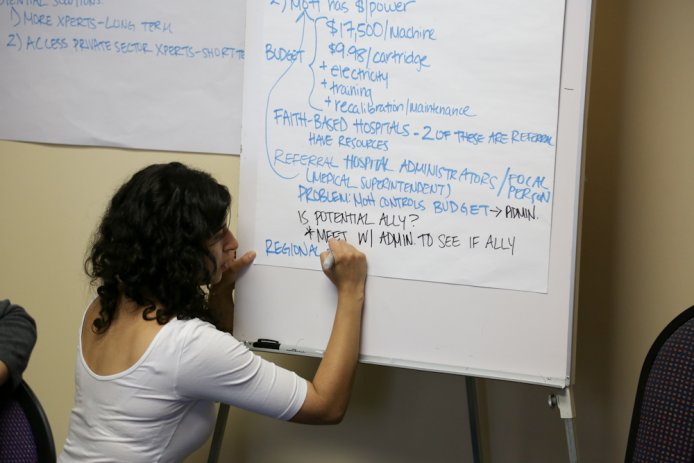 POTENTIAL SOLUTIONS:
1) MORE XPERTS-LONG TERM
2) ACCESS PRIVATE SECTOR XPERTS-SHORT TE
2) MoH has $/power
$17,500/Machine
BUDGET
$9.98/cartridge
+ electricity
+ training
+ recalibration/Maintenance
FAITH-BASED HOSPITALS - 2 OF THESE ARE REFERRAL
HAVE RESOURCES
REFERRAL HOSPITAL ADMINISTRATORS / FOCAL PERSON
(MEDICAL SUPERINTENDENT)
PROBLEM: MOH CONTROLS BUDGET → ADMIN.
IS POTENTIAL ALLY?
*MEET W/ ADMIN. TO SEE IF ALLY
REGIONAL